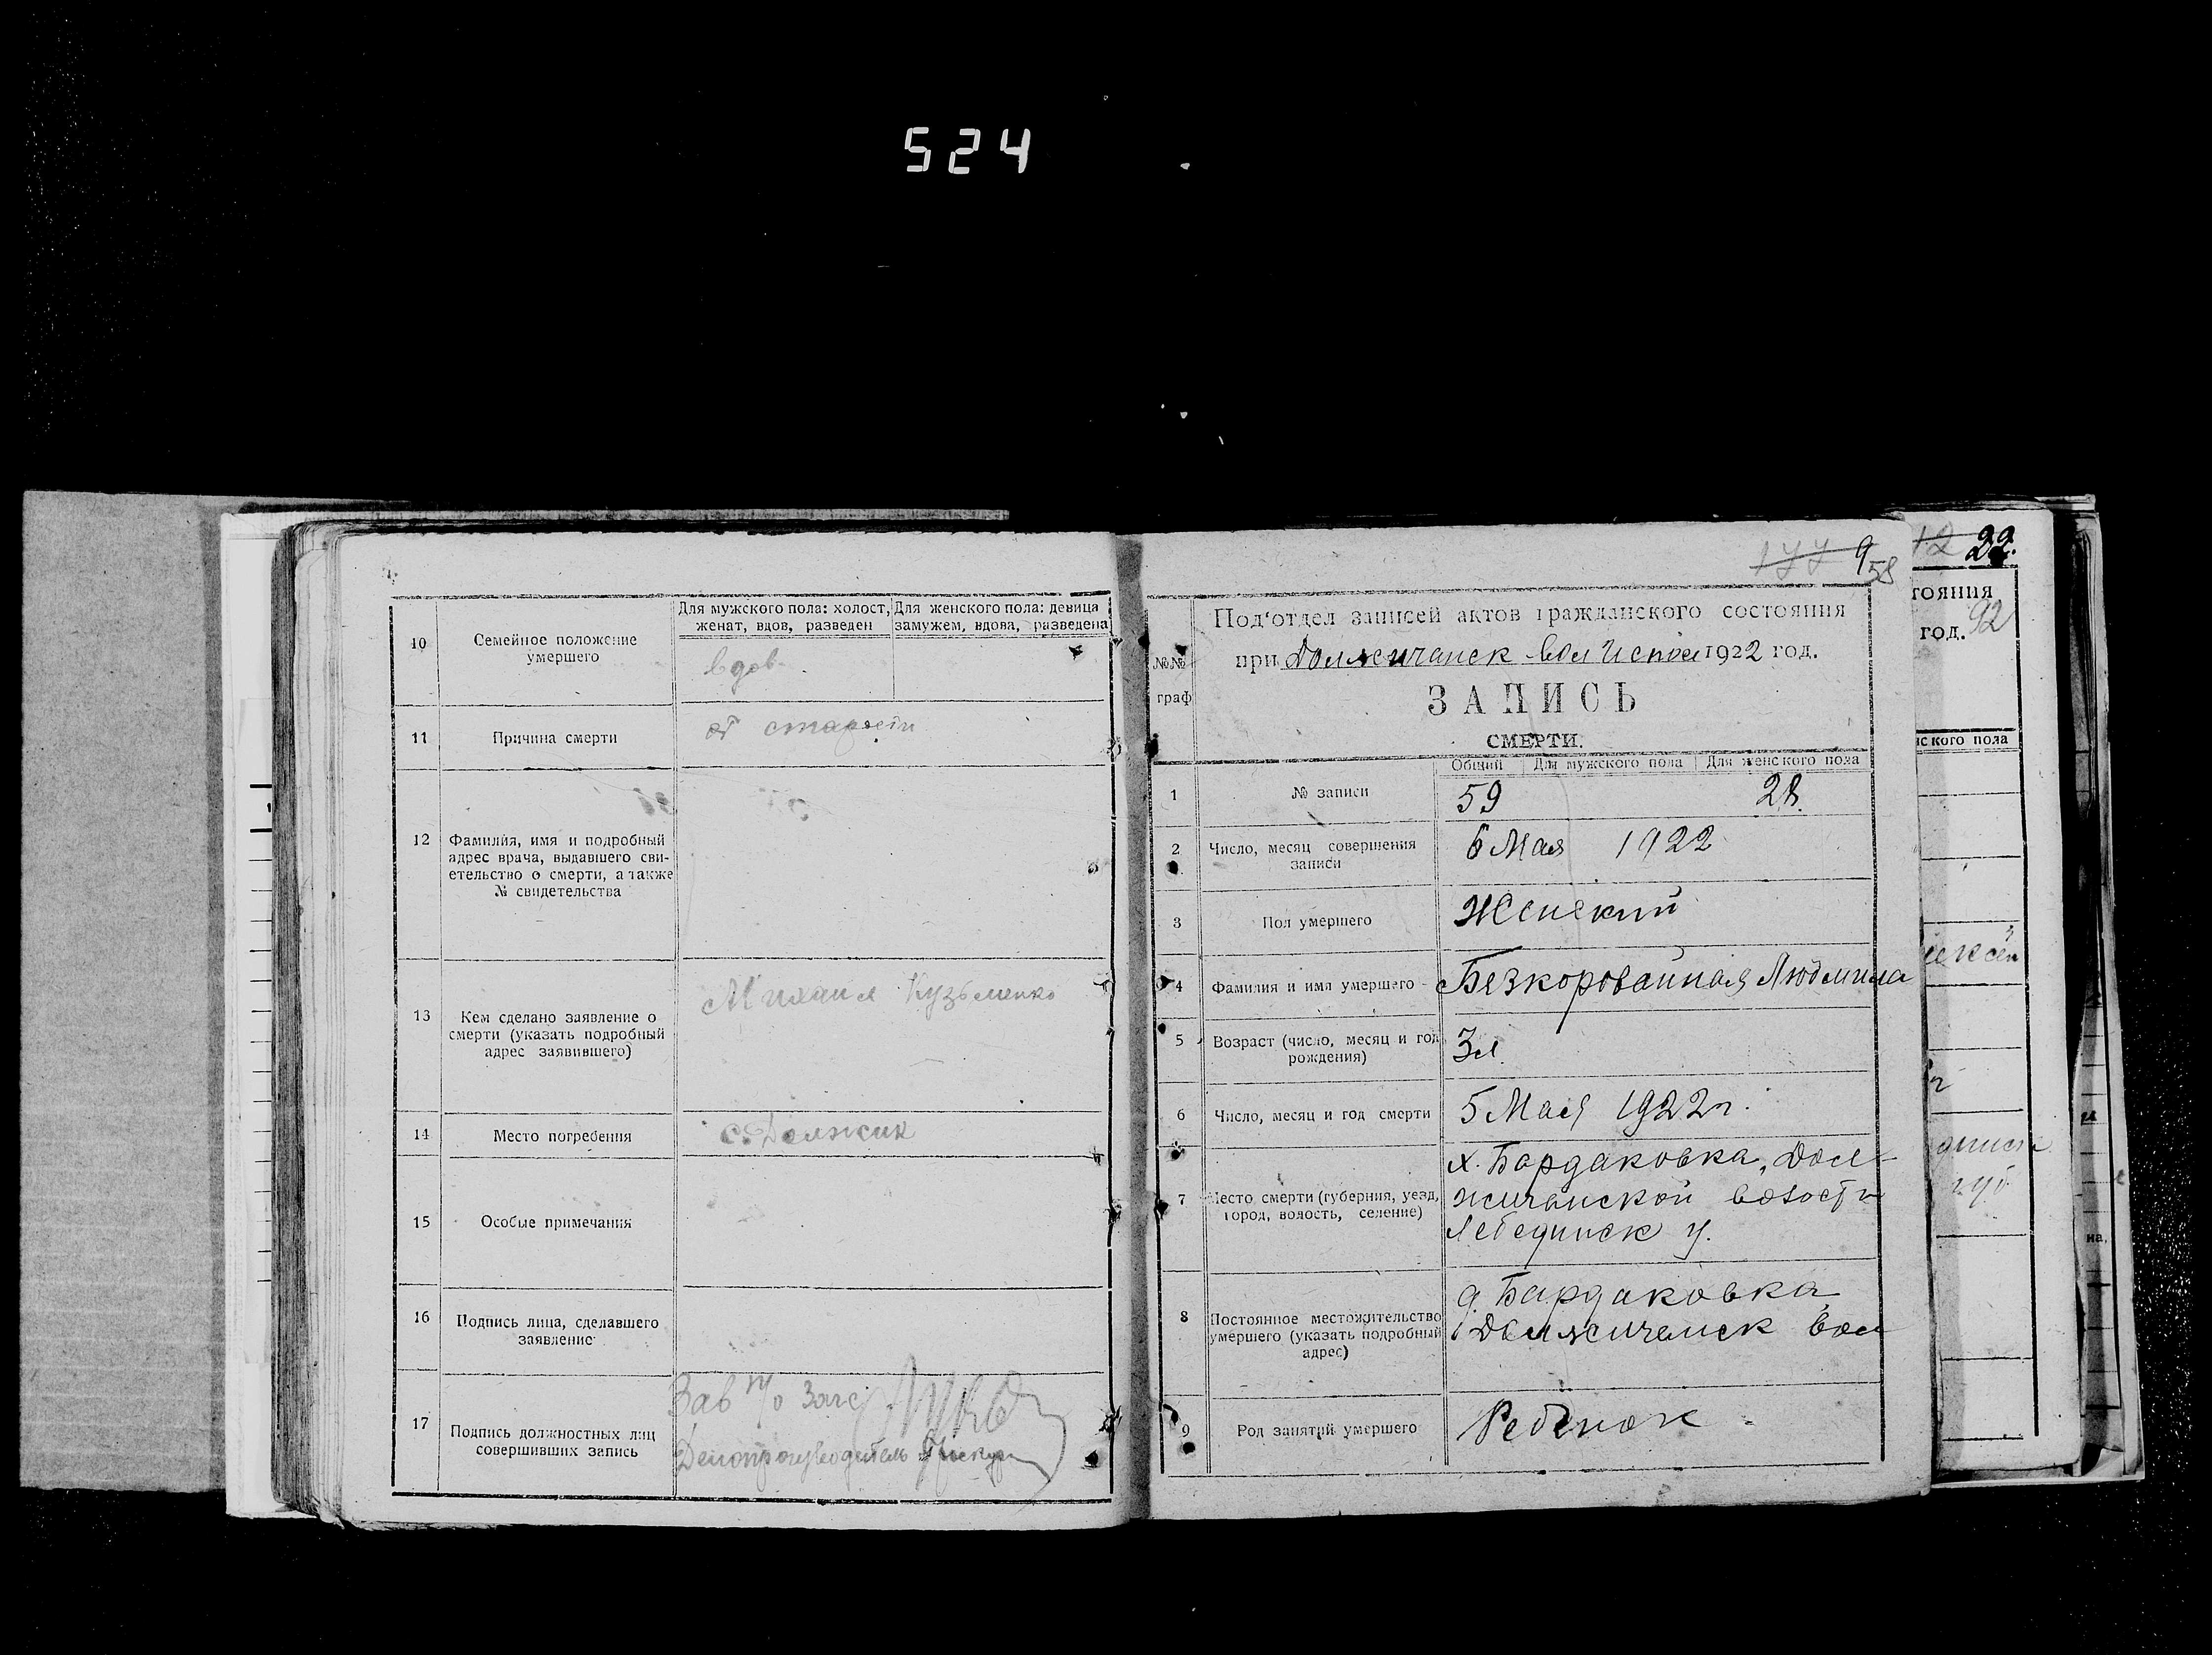 524
10
Семейное положение
умершего
Для мужского пола: холост,
женат, вдов, разведен
Для женского пола: девица
замужем, вдова, разведена
вдов
11
Причина смерти
от старости
12
Фамилия, имя и подробный
адрес врача, выдавшего сви-
етельство о смерти, а также
№ свидетельства
13
Кем сделано заявление о
смерти (указать подробный
адрес заявившего)
Михаил Кузьменко
14
Место погребения
с. Должик
15
Особые примечания
16
Подпись лица, сделавшего
заявление
17
Подпись должностных лиц
совершивших запись
Зав п/о Загс
Делопроизводитель
177 9
58
№№
граф
Под'отдел записей актов гражданского состояния
при Должичанск вол Испол 1922 год.
ЗАПИСЬ
СМЕРТИ.
Общий Для мужского пола Для женского пола
1
№ записи
59 28.
2
Число, месяц совершения
записи
6 Мая 1922
3
Пол умершего
Женский
4
Фамилия и имя умершего
Безкоровайная Людмила
5
Возраст (число, месяц и год
рождения)
3 л.
6
Число, месяц и год смерти
5 Мая 1922 г.
7
Место смерти (губерния, уезд,
город, волость, селение)
х. Бардаковка, Дол-
жичанской волости
Лебединск у.
8
Постоянное местожительство
умершего (указать подробный
адрес)
д. Бардаковка
Должичанск вол
9
Род занятий умершего
Ребенок
12 22.
тояния
год. 92
нского пола
г
губ
на,